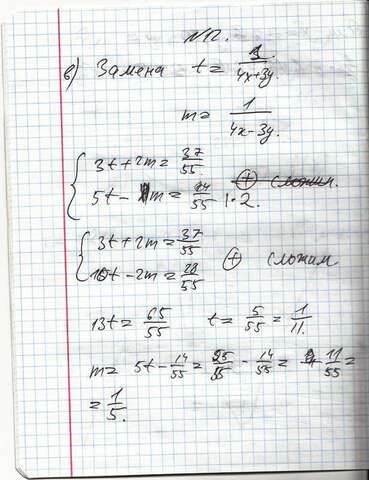 №12.
в) Замена t = 1/(4x+3y)
m = 1/(4x-3y).
{ 3t+2m = 37/55
5t - m = 14/55 |·2.
{ 3t+2m = 37/55
10t-2m = 28/55 ⊕ сложим
13t = 65/55 t = 5/55 = 1/11.
m = 5t - 14/55 = 25/55 - 14/55 = 11/55 =
= 1/5.